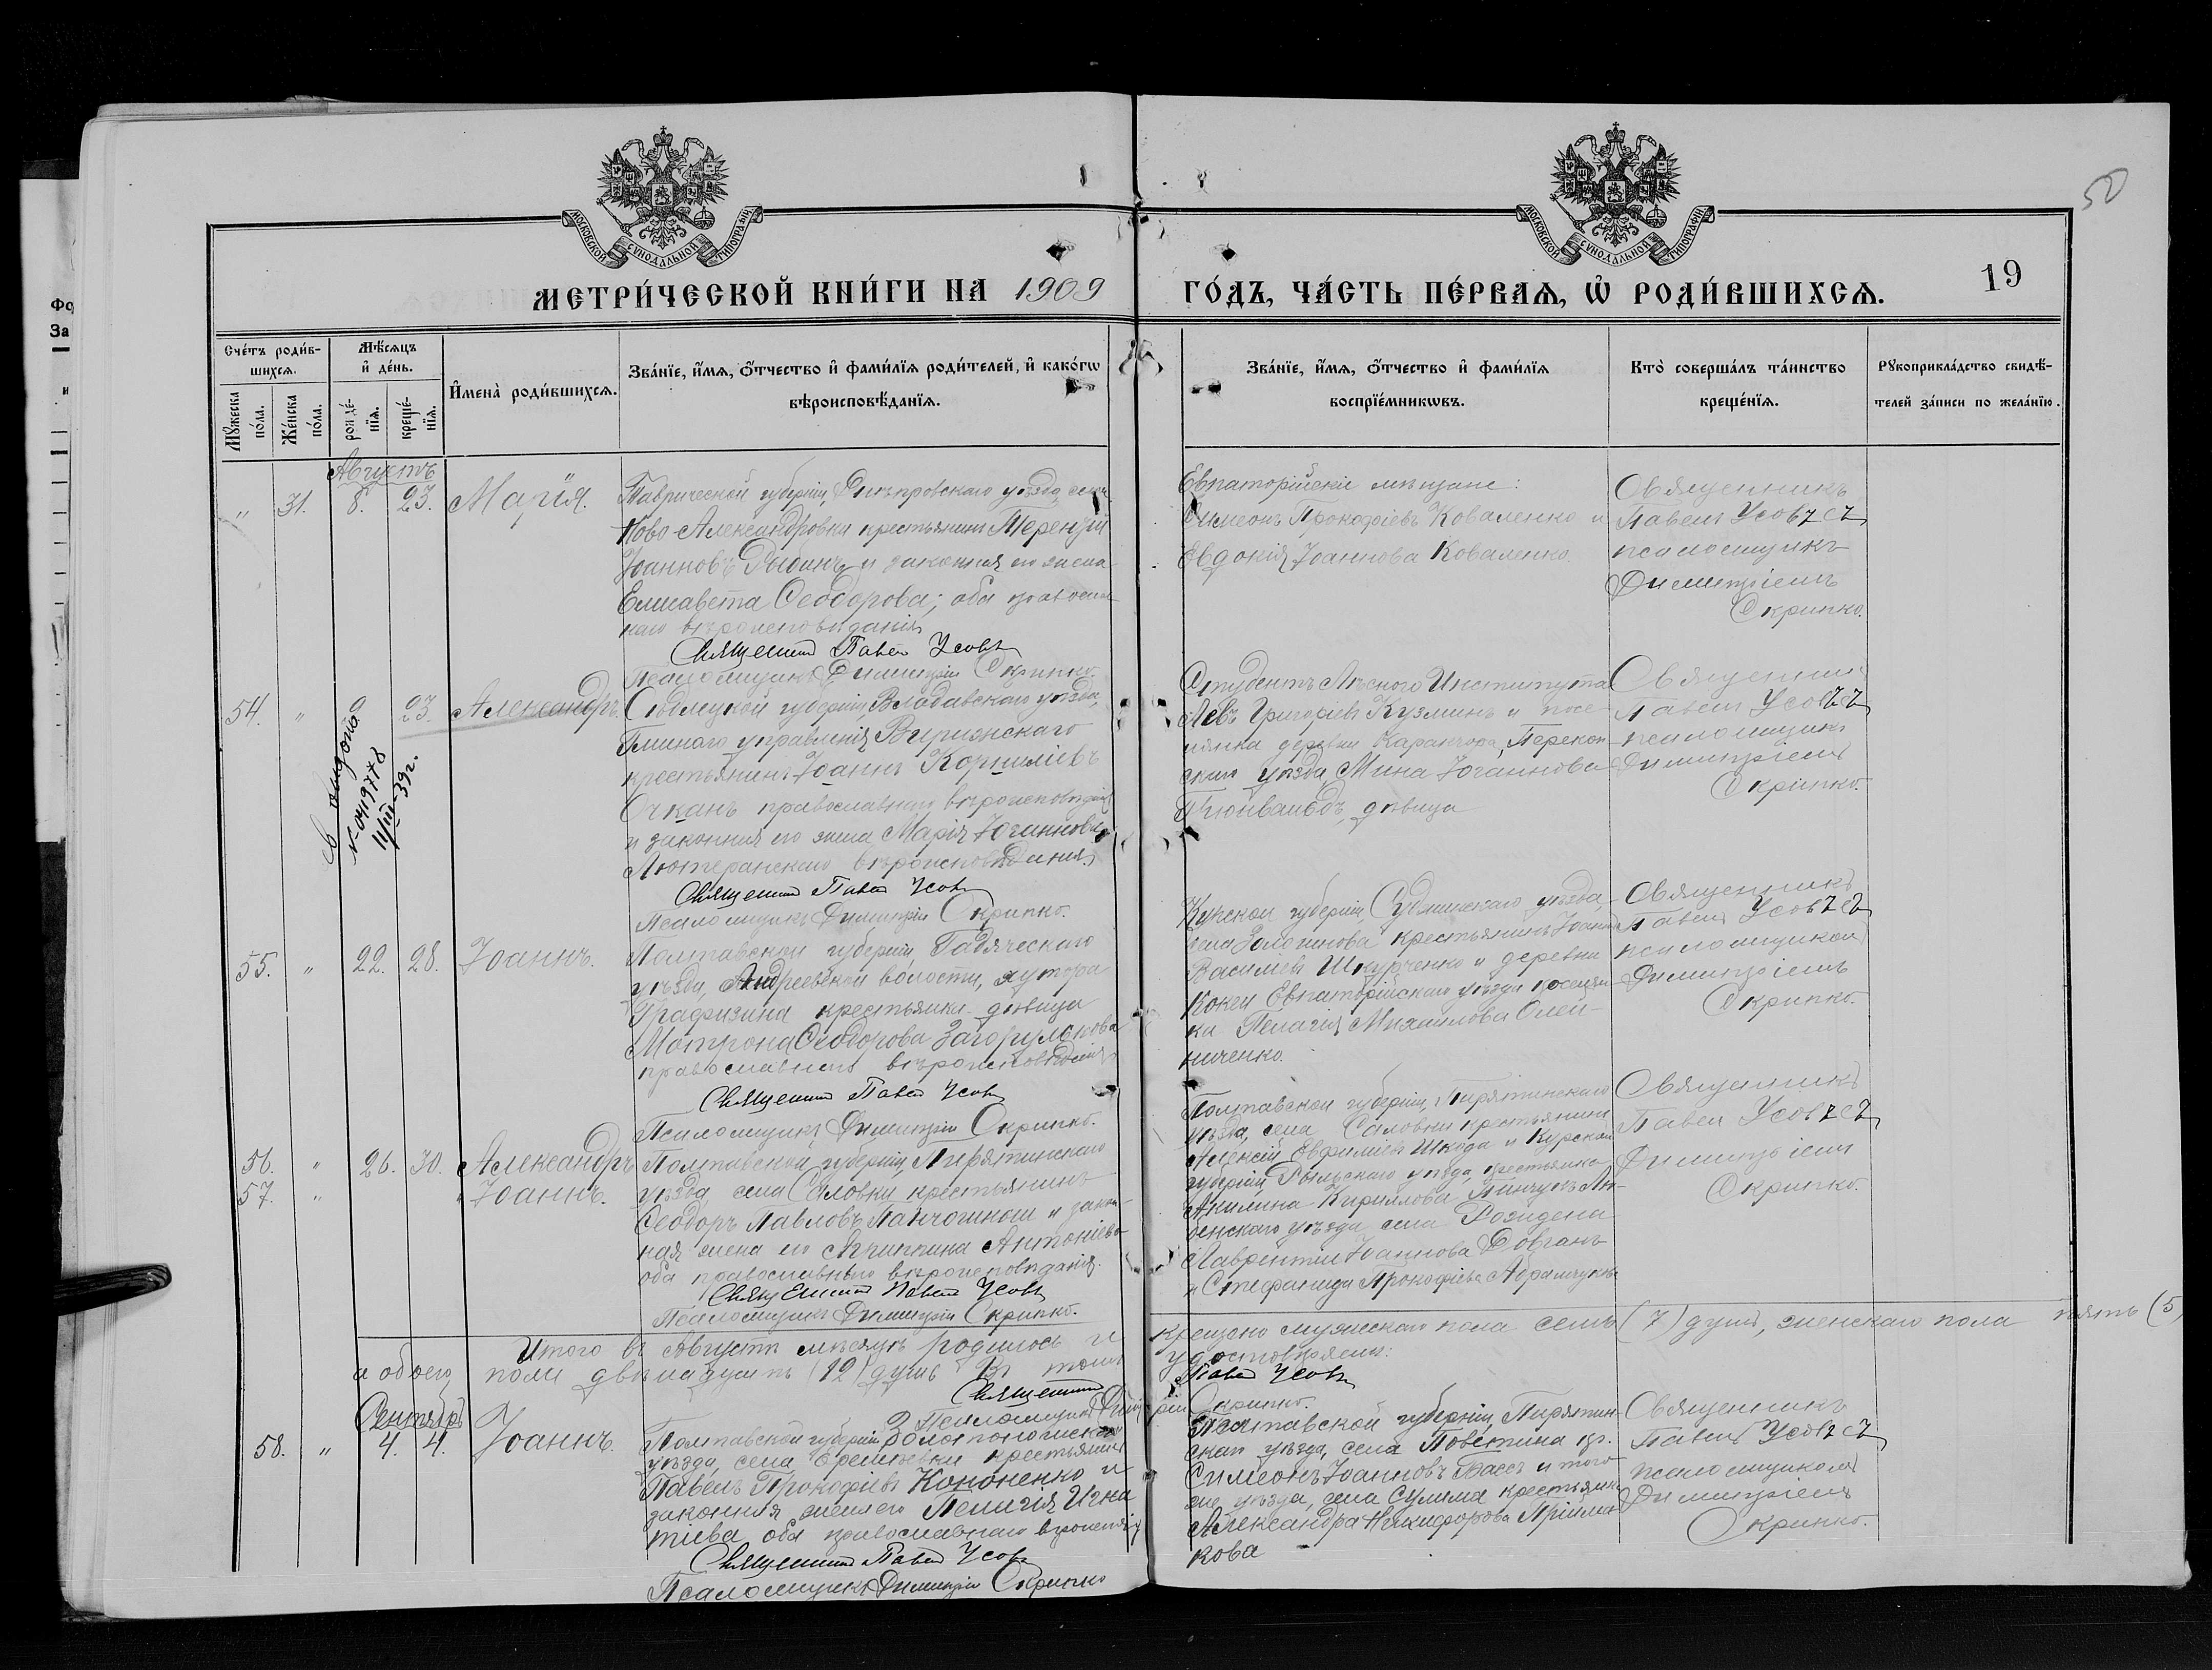 50
19
МОСКОВСКОЙ СѴНОДАЛЬНОЙ ТИПОГРАФІИ
МОСКОВСКОЙ СѴНОДАЛЬНОЙ ТИПОГРАФІИ
МЕТРИ́ЧЕСКОЙ КНИ́ГИ НА 1909
ГО́ДЪ, ЧА́СТЬ ПЕ́РВАѦ, Ѡ҆ РОДИ́ВШИХСѦ.
Сче́тъ роди́в-
шихсѧ.
Мꙋ́жеска по́ла.
Же́нска по́ла.
Мѣ́сѧцъ
и҆ де́нь.
рожде́-
нїѧ.
креще́-
нїѧ.
И҆мена̀ роди́вшихсѧ.
Зва́нїе, и҆́мѧ, ѻ҆́тчество и҆ фами́лїѧ роди́телей, и҆ како́гѡ
вѣроисповѣ́данїѧ.
Зва́нїе, и҆́мѧ, ѻ҆́тчество и҆ фами́лїѧ
воспрїе́мникѡвъ.
Кто̀ соверша́лъ та́инство
креще́нїѧ.
Рꙋкоприкла́дство свидѣ́-
телей за́писи по жела́нїю.
Августъ
" 31. 8. 23. Марія.
Таврической губерніи, Днѣпровскаго уѣзда, села
Ново-Александровки крестьянинъ Терентій
Іоанновъ и законная его жена
Елисавета Ѳеодорова; оба православ-
наго вѣроисповѣданія
Священникъ Павелъ Усовъ
Псаломщикъ Димитрій Скрипко.
Евпаторійскіе мѣщане:
Симеонъ Прокофіевъ Коваленко и
Евдокія Іоаннова Коваленко.
Священникъ
Павелъ Усовъ съ
псаломщикъ
Димитріемъ
Скрипко.
54. " 9 23. Александръ.
N-0419778
11/III-39г.
Сѣдлецкой губерніи, Владавскаго уѣзда,
Гминаго управленія
крестьянинъ Іоаннъ Корниліевъ
Очканъ православнаго вѣроисповѣданія
и законная его жена Марія Іоганновна
Лютеранскаго вѣроисповѣданія
Священникъ Павелъ Усовъ
Псаломщикъ Димитрій Скрипко.
Студентъ Лѣсного Института
Левъ Григоріевъ Кузминъ и посе-
лянка деревни Каранчора, Перекоп-
скаго уѣзда Мина Іоганнова
дѣвица
Священникъ
Павелъ Усовъ съ
псаломщикъ
Димитріемъ
Скрипко.
55. " 22. 28. Іоаннъ.
Полтавской губерніи, Гадяческаго
уѣзда, Андреевской волости, хутора
крестьянка дѣвица
Матрона Ѳеодорова Загорулькова
православнаго вѣроисповѣданія
Священникъ Павелъ Усовъ
Псаломщикъ Димитрій Скрипко.
Курской губерніи Суджанскаго уѣзда,
села крестьянинъ Іоаннъ
Василіевъ Шкурченко и деревни
Кокеи Евпаторійскаго уѣзда поселян-
ка Пелагія Михаилова Олей-
ниченко.
Священникъ
Павелъ Усовъ съ
псаломщикомъ
Димитріемъ
Скрипко.
56. " 26. 30. Александръ
57. " " Іоаннъ.
Полтавской губерніи, Пирятинскаго
уѣзда, села Саловки крестьянинъ
Ѳеодоръ Павловъ и закон-
ная жена его Агриппина Антоніева
оба православнаго вѣроисповѣданія.
Священникъ Павелъ Усовъ
Псаломщикъ Димитрій Скрипко.
Полтавской губерніи, Пирятинскаго
уѣзда, села Саловки крестьянинъ
Алексій Евфиміевъ Шкода и Курской
губерніи, Рыльскаго уѣзда, крестьянка
Акилина Кириллова
уѣзда села
Лаврентій Іоаннова Довгань
и Стефанида Прокофіева Абрамчукова
Священникъ
Павелъ Усовъ съ
Димитріемъ
Скрипко.
Итого въ Августѣ мѣсяцѣ родилось и крещено мужескаго пола семь (7) душъ, женскаго пола пять (5)
а обоего пола двѣнадцать (12) душъ. Въ томъ удостовѣряемъ:
Священникъ Павелъ Усовъ
Псаломщикъ Димитрій Скрипко.
Сентябрь
58. " 4. 4. Іоаннъ.
Полтавской губерніи, Золотоношскаго
уѣзда, села Еремѣевки крестьянинъ
Павелъ Прокофіевъ Кононенко и
законная жена его Пелагія Игна-
тіева оба православнаго
Священникъ Павелъ Усовъ
Псаломщикъ Димитрій Скрипко
Полтавской губерніи, Пирятин-
скаго уѣзда, села кр.
Симеонъ Іоанновъ Бассъ и того
же уѣзда, села Сулима крестьянка
Александра Никифорова Прийма-
кова
Священникъ
Павелъ Усовъ съ
псаломщикомъ
Димитріемъ
Скрипко.